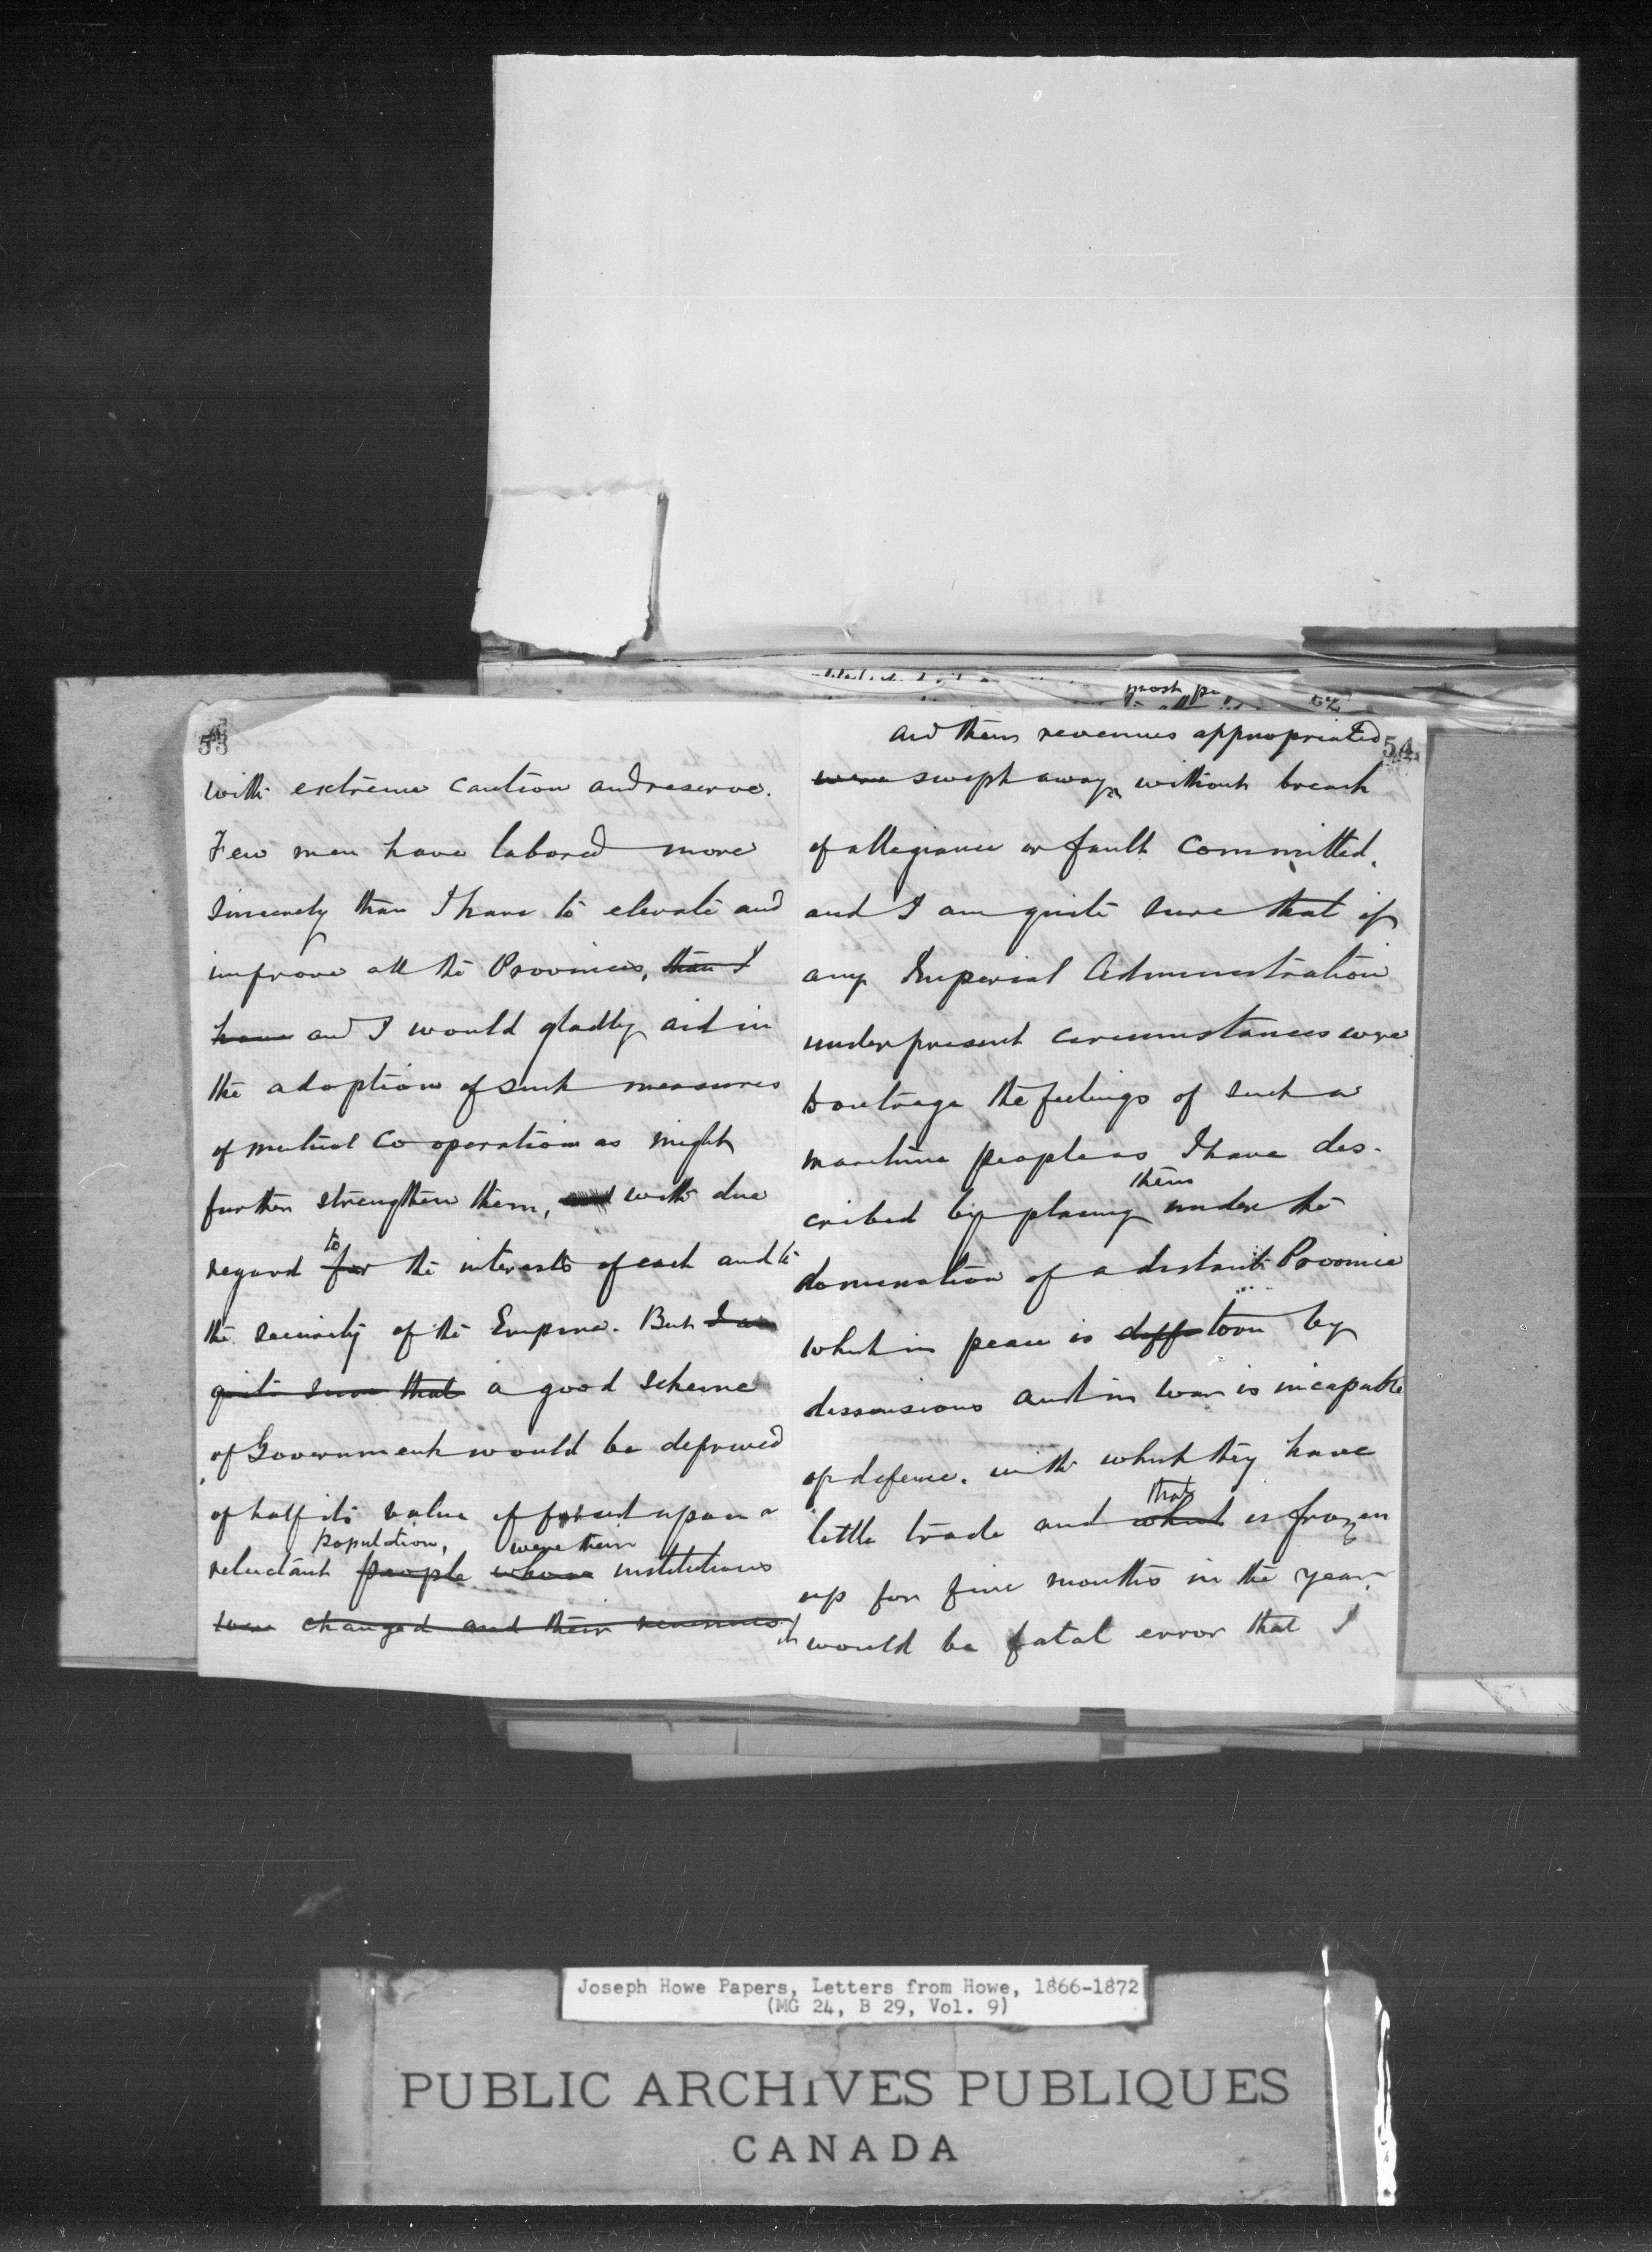 53
with extreme caution and reserve.
Few men have labored more
sincerely than I have to elevate and
improve all the Provinces, than I
have and I would gladly aid in
the adoption of such measures
of mutual co operation as might
further strengthen them, and with due
to
regard for the interests of each and to
the security of the Empire. But I am
quite sure that a good scheme
of Government would be deprived
of half its value if forced upon a
population, were their
reluctant people whose institutions
were changed and their revenues
54
and their revenues appropriated
were swept away, without breach
of allegiance or fault committed,
and I am quite sure that if
any Imperial Administration
under present circumstances were
to outrage the feelings of such a
maritime people as I have des-
them
cribed by placing under the
domination of a distant Province
which in peace is diff torn by
dissensions and in war is incapable
of defence, with which they have
that
little trade and which is frozen
up for five months in the year,
it would be fatal error that I
most pe
52
Joseph Howe Papers, Letters from Howe, 1866-1872
(MG 24, B 29, Vol. 9)
PUBLIC ARCHIVES PUBLIQUES
CANADA